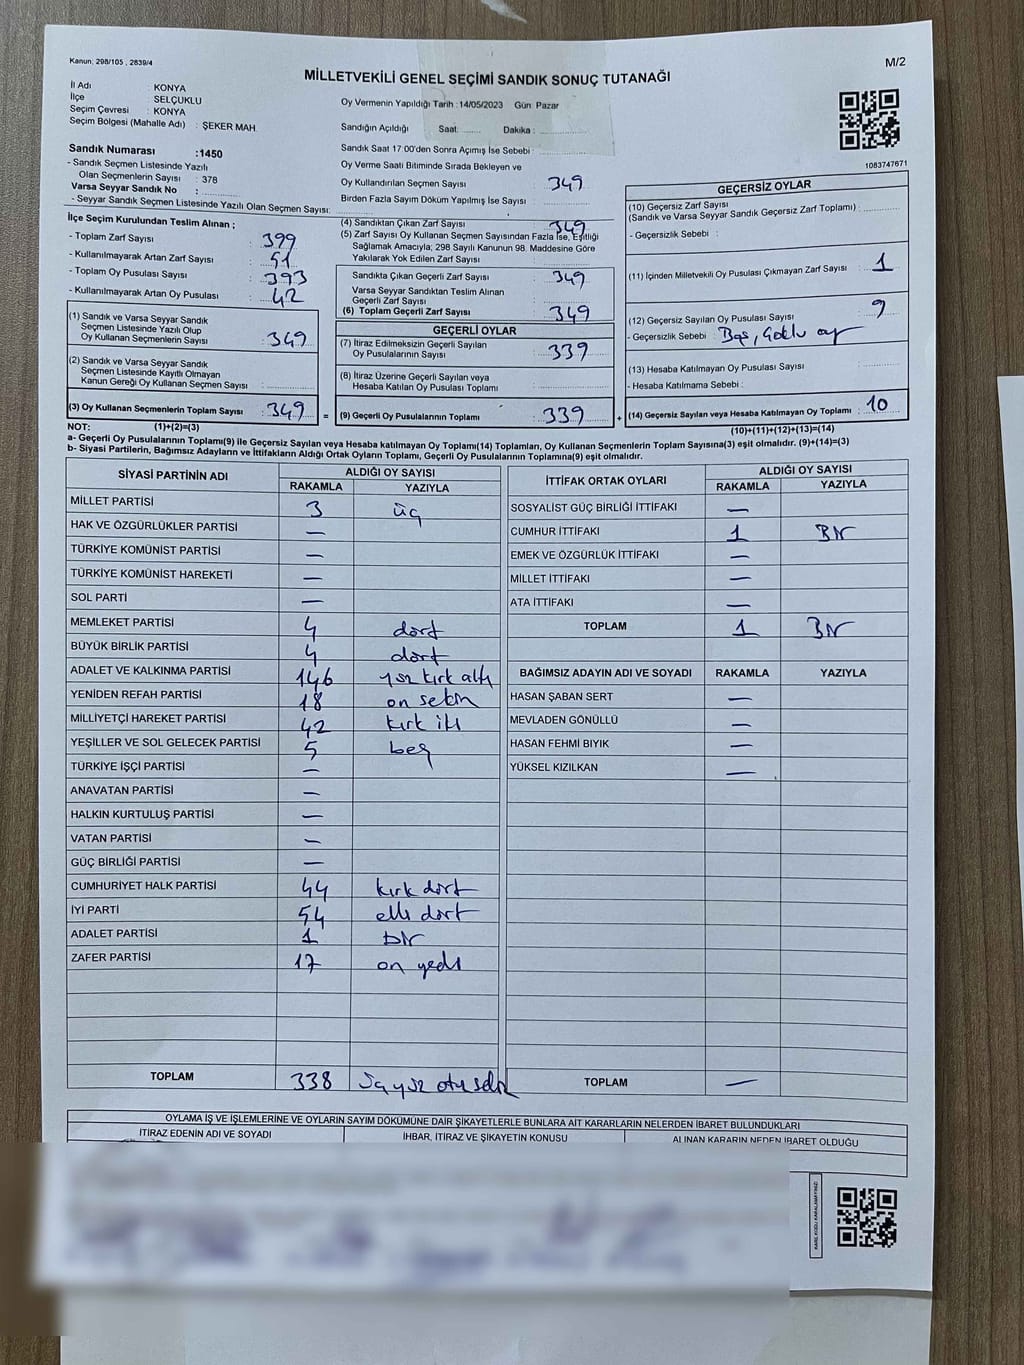 Kanun, 298/105 , 2839/4
M/2
MİLLETVEKİLİ GENEL SEÇİMİ SANDIK SONUÇ TUTANAĞI
İl Adı : KONYA
İlçe SELÇUKLU
Seçim Çevresi : KONYA
Seçim Bölgesi (Mahalle Adı) : ŞEKER MAH
Sandık Numarası :1450
- Sandık Seçmen Listesinde Yazılı
Olan Seçmenlerin Sayısı : 378
Varsa Seyyar Sandık No :
- Seyyar Sandık Seçmen Listesinde Yazılı Olan Seçmen Sayısı:
Oy Vermenin Yapıldığı Tarih : 14/05/2023 Gün: Pazar
Sandığın Açıldığı Saat: Dakika :
Sandık Saat 17:00'den Sonra Açımış İse Sebebi :
Oy Verme Saati Bitiminde Sırada Bekleyen ve
Oy Kullandırılan Seçmen Sayısı : 349
Birden Fazla Sayım Döküm Yapılmış İse Sayısı :
1083747671
İlçe Seçim Kurulundan Teslim Alınan ;
- Toplam Zarf Sayısı : 399
- Kullanılmayarak Artan Zarf Sayısı : 51
- Toplam Oy Pusulası Sayısı : 393
- Kullanılmayarak Artan Oy Pusulası : 42
(1) Sandık ve Varsa Seyyar Sandık
Seçmen Listesinde Yazılı Olup
Oy Kullanan Seçmenlerin Sayısı : 349
(2) Sandık ve Varsa Seyyar Sandık
Seçmen Listesinde Kayıtlı Olmayan
Kanun Gereği Oy Kullanan Seçmen Sayısı :
(3) Oy Kullanan Seçmenlerin Toplam Sayısı : 349 =
(4) Sandıktan Çıkan Zarf Sayısı : 349
(5) Zarf Sayısı Oy Kullanan Seçmen Sayısından Fazla İse, Eşitliği
Sağlamak Amacıyla; 298 Sayılı Kanunun 98. Maddesine Göre
Yakılarak Yok Edilen Zarf Sayısı :
Sandıkta Çıkan Geçerli Zarf Sayısı : 349
Varsa Seyyar Sandıktan Teslim Alınan
Geçerli Zarf Sayısı :
(6) Toplam Geçerli Zarf Sayısı : 349
GEÇERLİ OYLAR
(7) İtiraz Edilmeksizin Geçerli Sayılan
Oy Pusulalarının Sayısı : 339
(8) İtiraz Üzerine Geçerli Sayılan veya
Hesaba Katılan Oy Pusulası Toplamı :
(9) Geçerli Oy Pusulalarının Toplamı : 339 +
GEÇERSİZ OYLAR
(10) Geçersiz Zarf Sayısı
(Sandık ve Varsa Seyyar Sandık Geçersiz Zarf Toplamı) :
- Geçersizlik Sebebi :
(11) İçinden Milletvekili Oy Pusulası Çıkmayan Zarf Sayısı : 1
(12) Geçersiz Sayılan Oy Pusulası Sayısı : 9
- Geçersizlik Sebebi : Boş, Çoklu oy
(13) Hesaba Katılmayan Oy Pusulası Sayısı :
- Hesaba Katılmama Sebebi :
(14) Geçersiz Sayılan veya Hesaba Katılmayan Oy Toplamı : 10
NOT: (1)+(2)=(3)
(10)+(11)+(12)+(13)=(14)
a- Geçerli Oy Pusulalarının Toplamı(9) ile Geçersiz Sayılan veya Hesaba katılmayan Oy Toplamı(14) Toplamları, Oy Kullanan Seçmenlerin Toplam Sayısına(3) eşit olmalıdır. (9)+(14)=(3)
b- Siyasi Partilerin, Bağımsız Adayların ve İttifakların Aldığı Ortak Oyların Toplamı, Geçerli Oy Pusulalarının Toplamına(9) eşit olmalıdır.
SİYASİ PARTİNİN ADI ALDIĞI OY SAYISI
RAKAMLA YAZIYLA
MİLLET PARTİSİ 3 üç
HAK VE ÖZGÜRLÜKLER PARTİSİ —
TÜRKİYE KOMÜNİST PARTİSİ —
TÜRKİYE KOMÜNİST HAREKETİ —
SOL PARTİ —
MEMLEKET PARTİSİ 4 dört
BÜYÜK BİRLİK PARTİSİ 4 dört
ADALET VE KALKINMA PARTİSİ 146 yüz kırk altı
YENİDEN REFAH PARTİSİ 18 on sekiz
MİLLİYETÇİ HAREKET PARTİSİ 42 kırk iki
YEŞİLLER VE SOL GELECEK PARTİSİ 5 beş
TÜRKİYE İŞÇİ PARTİSİ —
ANAVATAN PARTİSİ —
HALKIN KURTULUŞ PARTİSİ —
VATAN PARTİSİ —
GÜÇ BİRLİĞİ PARTİSİ —
CUMHURİYET HALK PARTİSİ 44 kırk dört
İYİ PARTİ 54 elli dört
ADALET PARTİSİ 1 bir
ZAFER PARTİSİ 17 on yedi
TOPLAM 338 üçyüz otuz sekiz
İTTİFAK ORTAK OYLARI ALDIĞI OY SAYISI
RAKAMLA YAZIYLA
SOSYALİST GÜÇ BİRLİĞİ İTTİFAKI —
CUMHUR İTTİFAKI 1 Bir
EMEK VE ÖZGÜRLÜK İTTİFAKI —
MİLLET İTTİFAKI —
ATA İTTİFAKI —
TOPLAM 1 Bir
BAĞIMSIZ ADAYIN ADI VE SOYADI RAKAMLA YAZIYLA
HASAN ŞABAN SERT —
MEVLADEN GÖNÜLLÜ —
HASAN FEHMİ BIYIK —
YÜKSEL KIZILKAN —
TOPLAM —
OYLAMA İŞ VE İŞLEMLERİNE VE OYLARIN SAYIM DÖKÜMÜNE DAİR ŞİKAYETLERLE BUNLARA AİT KARARLARIN NELERDEN İBARET BULUNDUKLARI
İTİRAZ EDENİN ADI VE SOYADI İHBAR, İTİRAZ VE ŞİKAYETİN KONUSU ALINAN KARARIN NEDEN İBARET OLDUĞU
KARE KODU KARALAMAYINIZ!